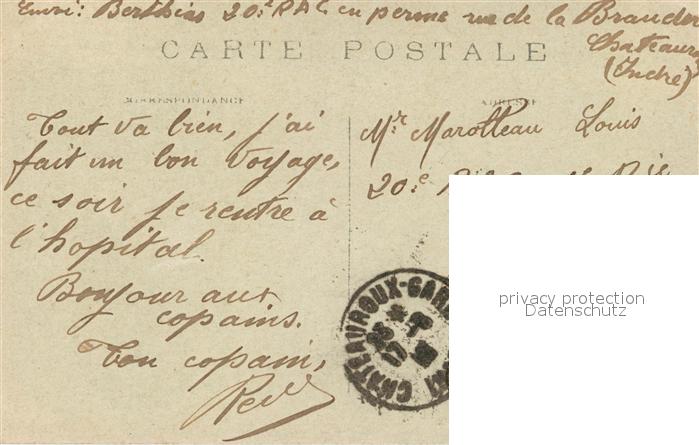 Envoi: Berthias 20e RAC en perme rue de la
Chateauroux
(Indre)
CARTE POSTALE
CORRESPONDANCE
ADRESSE
Tout va bien, j'ai
fait un bon voyage,
ce soir je rentre à
l'hopital.
Bonjour aux
copains.
Ton copain,
Mr Marolleau Louis
20e
CHATEAUROUX-GARE
privacy protection
Datenschutz